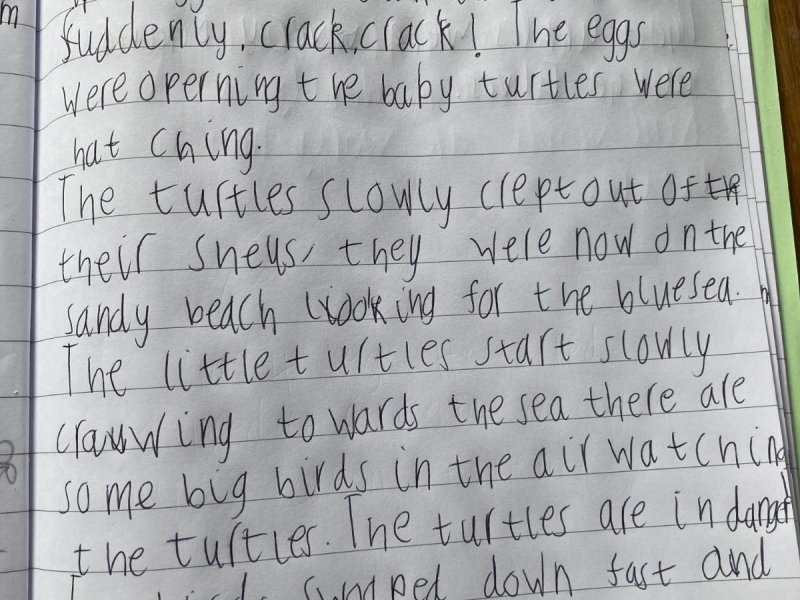 suddenly, crack, crack! The eggs
were operning the baby turtles were
hat ching.
The turtles slowly crept out of the
their shells, they were now on the
sandy beach looking for the blue sea.
The little turtles start slowly
crauwing towards the sea there are
some big birds in the air watching
the turtles. The turtles are in danger
down fast and